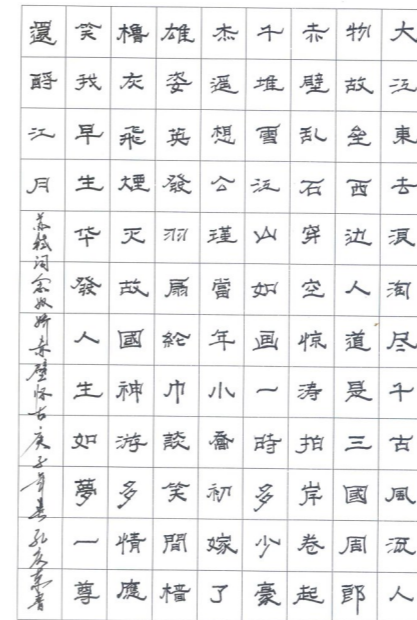 大江東去浪淘尽千古風流人
物故垒西边人道是三國周郎
赤壁乱石穿空惊涛拍岸卷起
千堆雪江山如画一時多少豪
杰遥想公瑾當年小喬初嫁了
雄姿英發羽扇綸巾談笑間檣
櫓灰飛煙灭故國神游多情應
笑我早生华發人生如夢一尊
還酹江月
苏轼词念奴娇赤壁怀古庚子年春孔庆